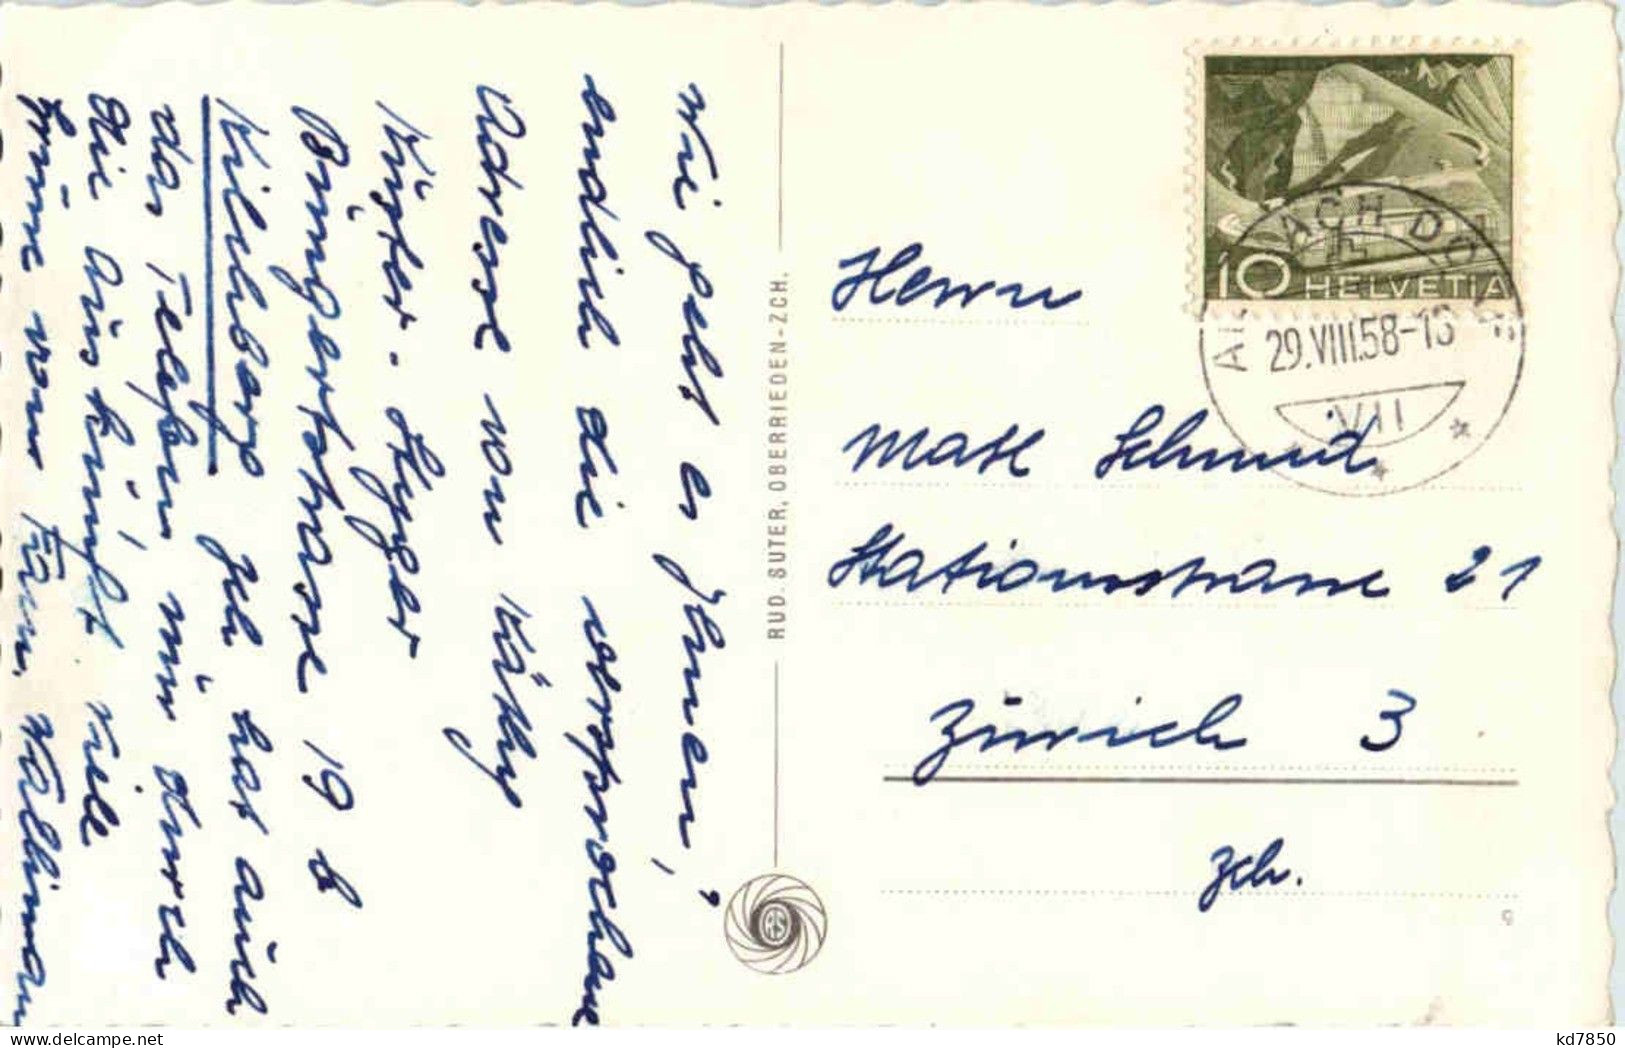 Wie geht es Ihnen,?
endlich die versprochene
Adresse von Käthy
Küster-Hyger
Büngertstrasse 19 b
Kilchberg Ich hat auch
das Telefon mir durch
die Auskunft viele
Grüsse von Fam. Wallimann
RUD. SUTER, OBERRIEDEN-ZCH.
RS
10 HELVETIA
29.VIII.58-18
VII
Herrn
Max Schmid
Stationsstrasse 21
Zürich 3
Zch.
9
kd7850